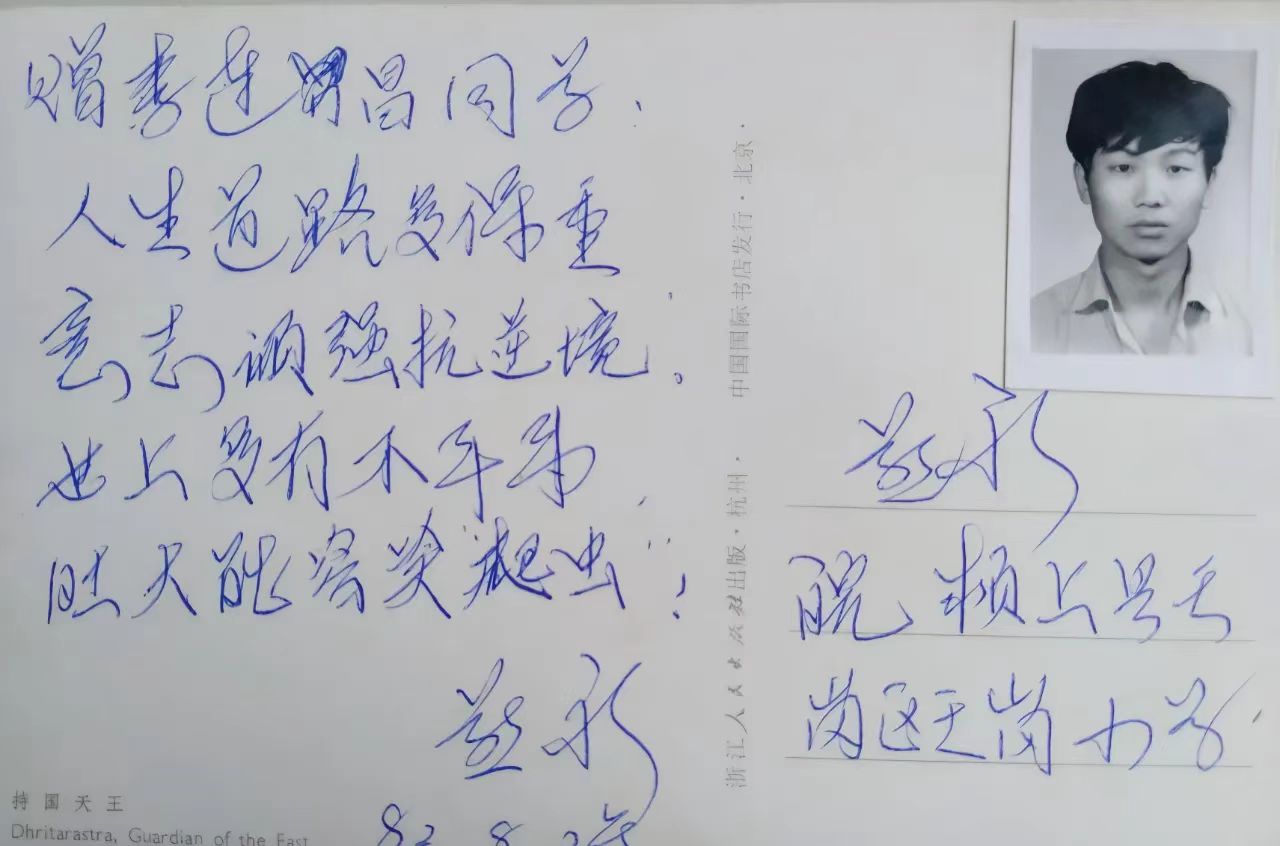 赠李连昌同学：
人生道路多保重
意志顽强抗逆境；
世上多有不平事，
胆大能容笑爬虫！
83.8.
持国天王
Dhritarastra, Guardian of the East
浙江人民出版社出版·杭州· 中国国际书店发行·北京·
上县天
岗区天岗小学